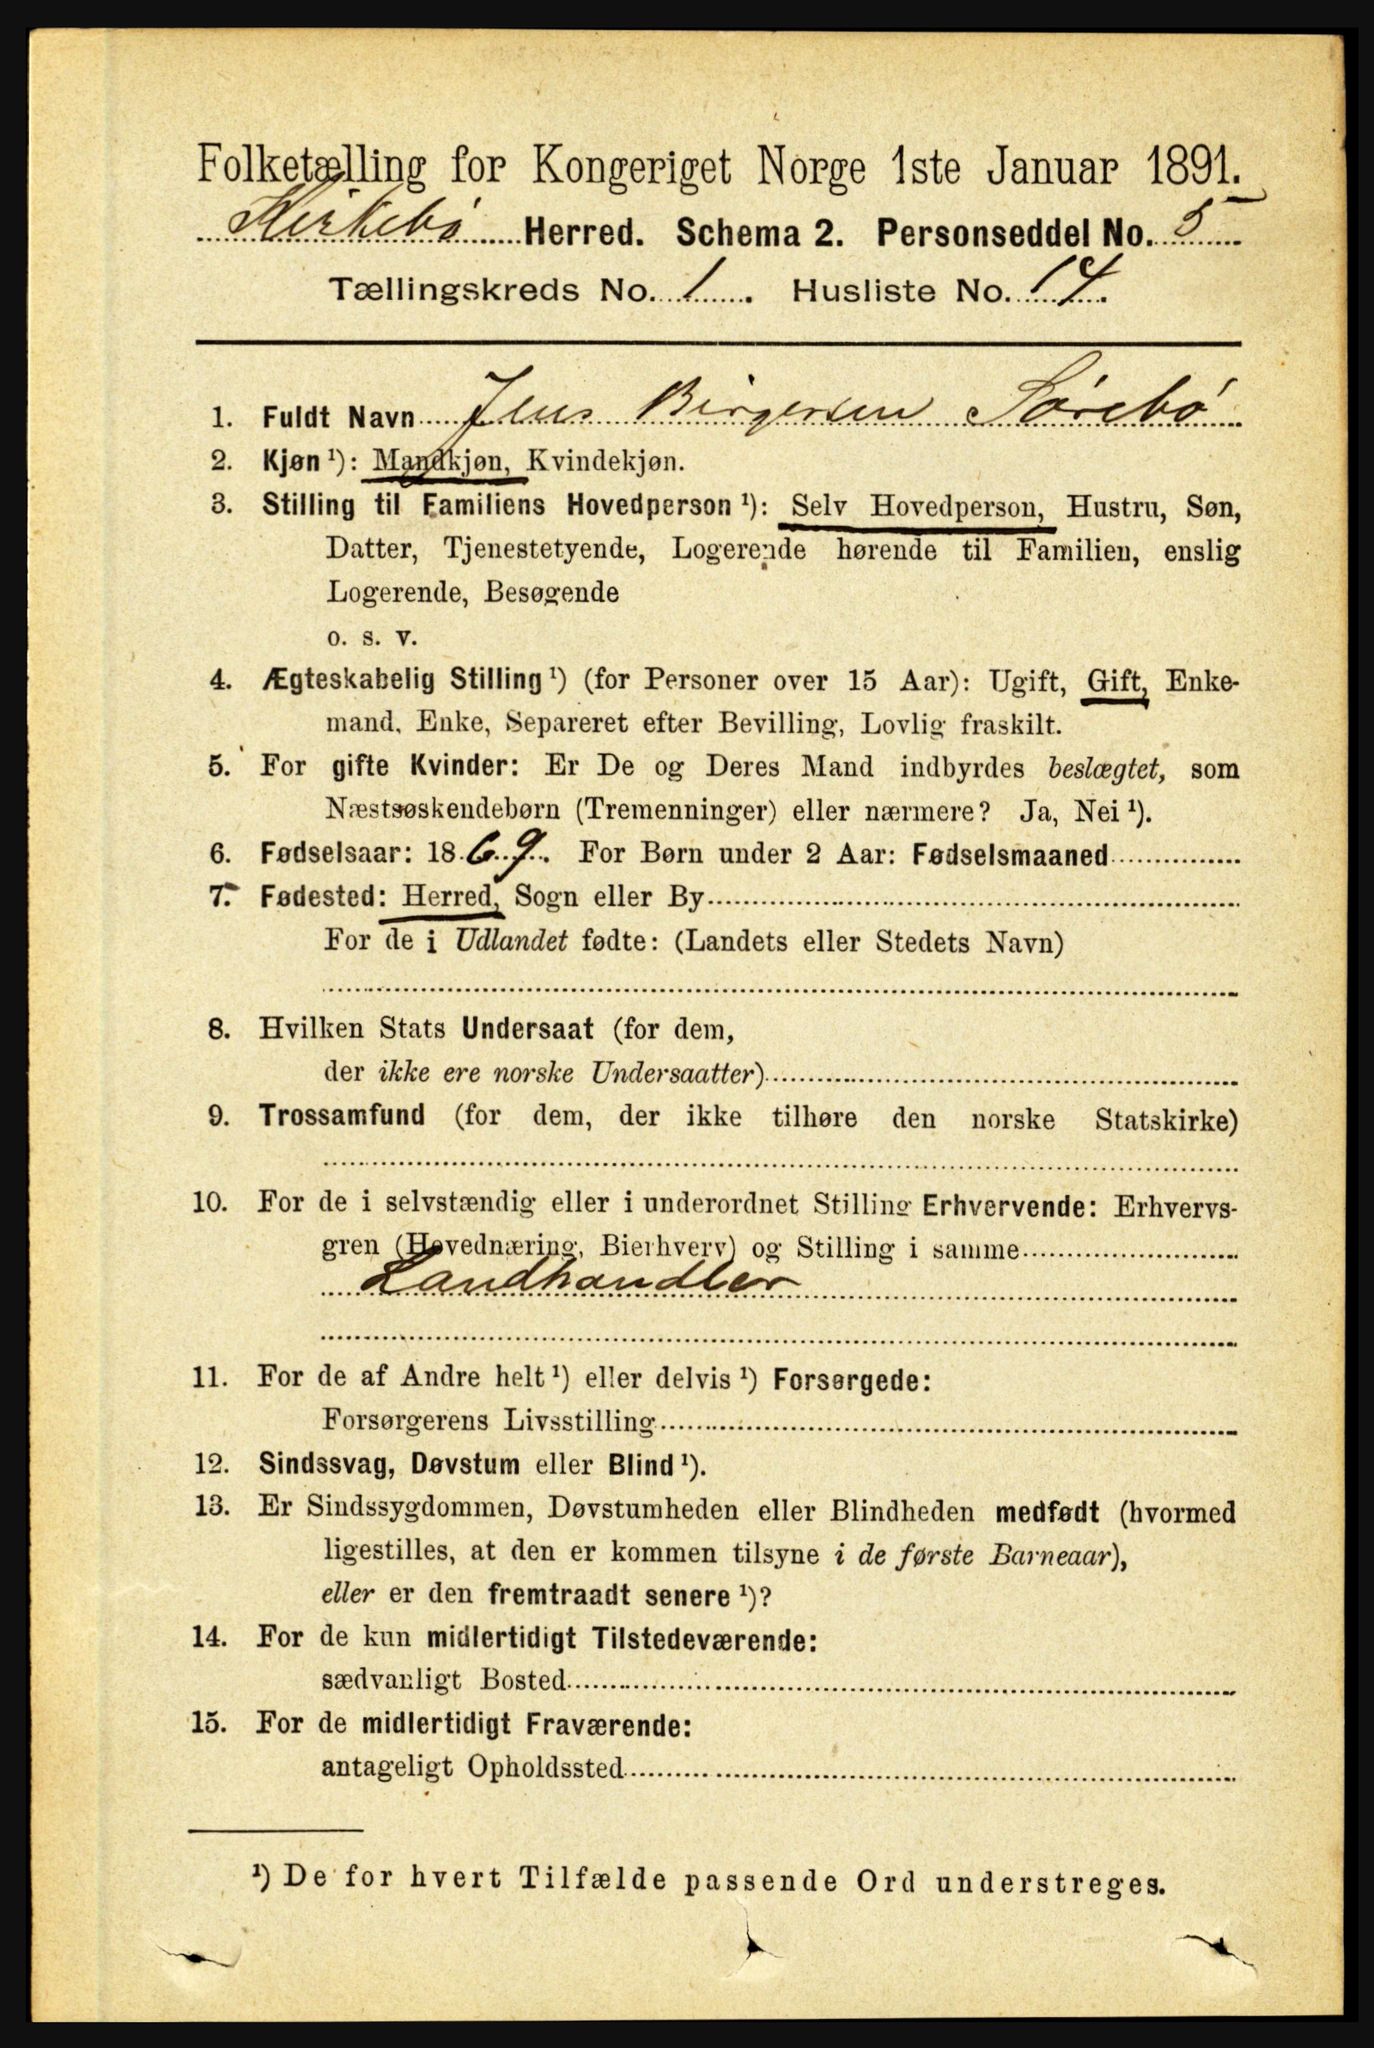 Folketælling for Kongeriget Norge 1ste Januar 1891.
Kirkebö Herred. Schema 2. Personseddel No. 5
Tællingskreds No. 1. Husliste No. 14.
1. Fuldt Navn Jens Birgersen Sörebö
2. Kjøn ¹): Mandkjøn, Kvindekjøn.
3. Stilling til Familiens Hovedperson ¹): Selv Hovedperson, Hustru, Søn,
Datter, Tjenestetyende, Logerende hørende til Familien, enslig
Logerende, Besøgende
o. s. v.
4. Ægteskabelig Stilling ¹) (for Personer over 15 Aar): Ugift, Gift, Enke-
mand, Enke, Separeret efter Bevilling, Lovlig fraskilt.
5. For gifte Kvinder: Er De og Deres Mand indbyrdes beslægtet, som
Næstsøskendebørn (Tremenninger) eller nærmere? Ja, Nei ¹).
6. Fødselsaar: 1869. For Børn under 2 Aar: Fødselsmaaned
7. Fødested: Herred, Sogn eller By
For de i Udlandet fødte: (Landets eller Stedets Navn)
8. Hvilken Stats Undersaat (for dem,
der ikke ere norske Undersaatter)
9. Trossamfund (for dem, der ikke tilhøre den norske Statskirke)
10. For de i selvstændig eller i underordnet Stilling Erhvervende: Erhvervs-
gren (Hovednæring, Bierhverv) og Stilling i samme
Landhandler
11. For de af Andre helt ¹) eller delvis ¹) Forsørgede:
Forsørgerens Livsstilling
12. Sindssvag, Døvstum eller Blind ¹).
13. Er Sindssygdommen, Døvstumheden eller Blindheden medfødt (hvormed
ligestilles, at den er kommen tilsyne i de første Barneaar),
eller er den fremtraadt senere ¹)?
14. For de kun midlertidigt Tilstedeværende:
sædvanligt Bosted
15. For de midlertidigt Fraværende:
antageligt Opholdssted
¹) De for hvert Tilfælde passende Ord understreges.